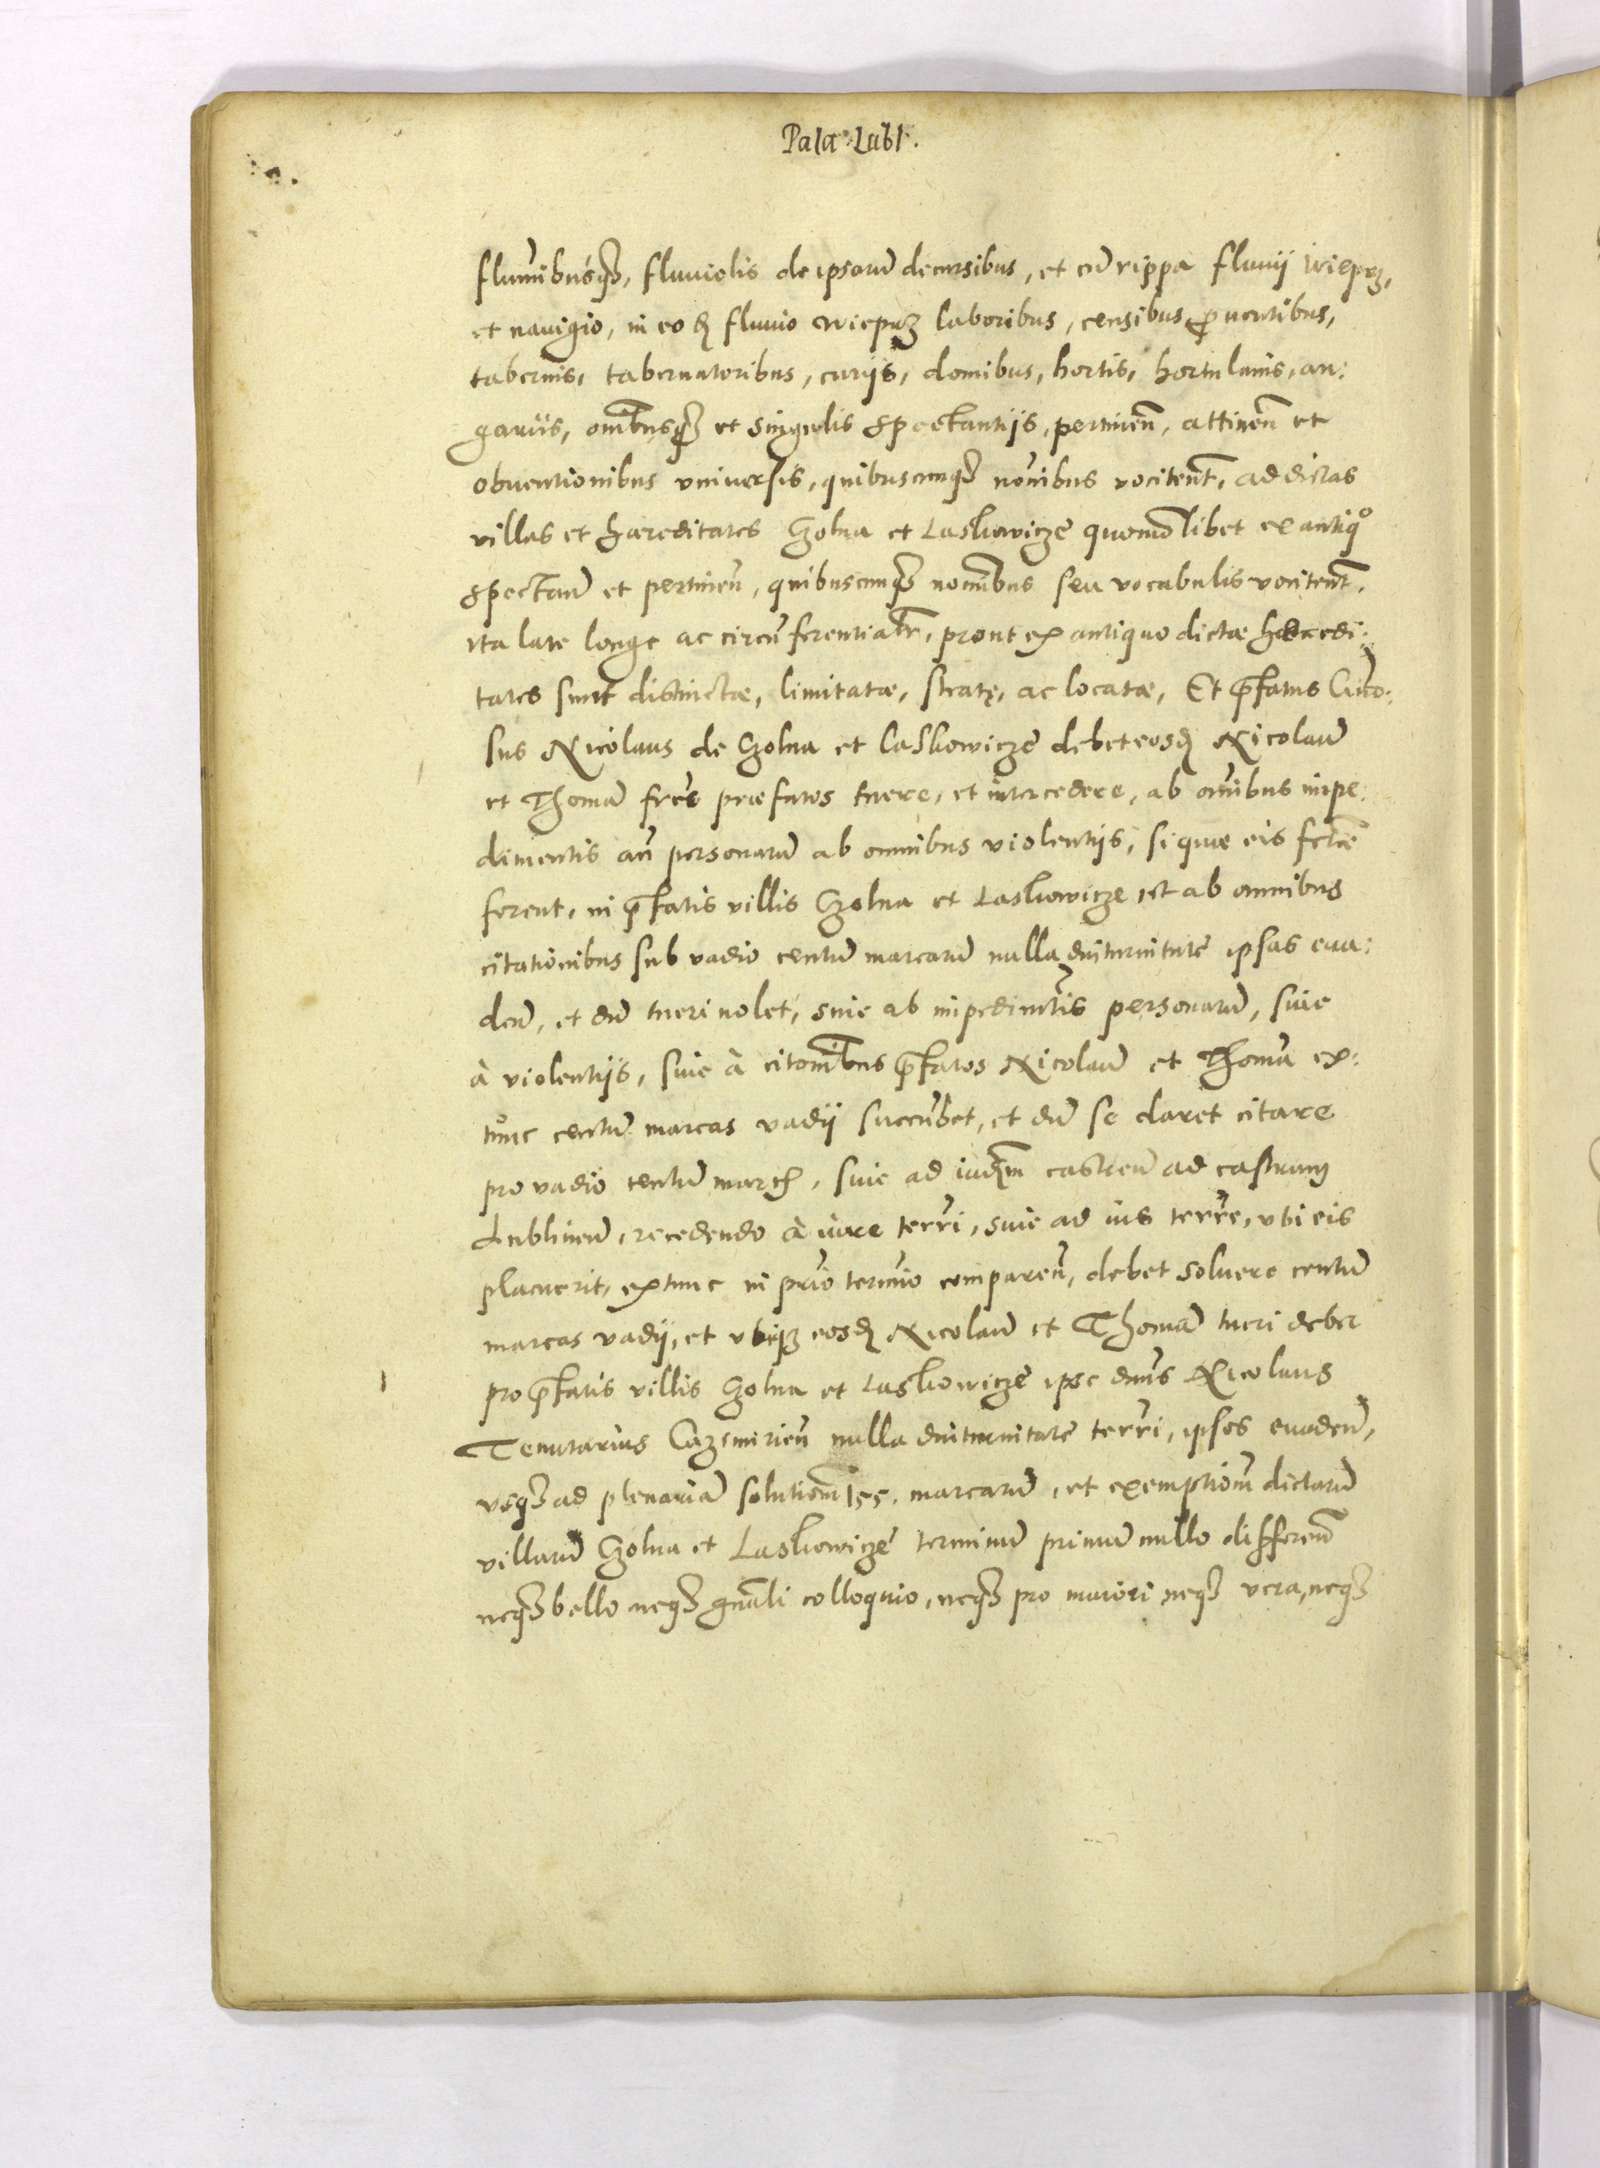 Pala: Lubl:
flumnibusq3, fluuiolis de ipsarũ decursibus, et cũ rippa fluuij Wieprz,
et nauigio, in eod fluuio Wieprz laboribus, censibus, prouentibus,
tabernis, tabernatoribus, curijs, domibus, hortis, hortulanis, an:
garijs, omibusq3 et singulis spectantijs, pertineñ, attineñ et
obuentionibus vniuersis, quibuscunq3 noĩbus vociteñt, ad dictas
villas et hæreditates Czolna et Laskowicze quomolibet ex antiqo
spectanũ et pertineñ, quibuscunq3 nomibus seu vocabulis vociteñt,
ita late longe ac circũferentiatr, prout ex antiquo dictæ hæredi:
tates sunt distinctæ, limitatæ, stratę, ac locatæ, Et p̃fatus
sus Nicolaus de Czolna et Laskowicze debet eosd Nicolaũ
et Thomã fres præfatos tuere, et intercedere, ab omibus impe:
dimentis añ personarũ ab omnibus violentijs, si quæ eis
ferent, in p̃fatis villis Czolna et Laskowicze, et ab omnibus
citationibus sub vadio centũ marcarũ nulla diuturnitate ipsas eua:
deñ, et dũ tueri nolet, siue ab impedimtis personarũ, siue
à violentijs, siue à citoñibus p̃fatos Nicolaũ et Thomã ex:
tunc centũ marcas vadij succũbet, et dũ se daret citare
pro vadio centũ march, siue ad iudm castreñ ad castrum
Lublineñ, recedendo à iure terri, siue ad ius terre, vbi eis
placuerit, extunc in prio termio compareñ, debet soluere centũ
marcas vadij, et vbiq3 eosd Nicolaũ et Thomã tueri debet
pro p̃fatis villis Czolna et Laskowicze ipse dnus Nicolaus
Tenutarius Cazimirieñ nulla diuturnitate terri, ipsos euadeñ,
vsq3 ad plenariã solutioñ 155. marcarũ, et exemptioñ dictarũ
villarũ Czolna et Laskowicze terminũ primũ nullo differeñ
neq3 bello neq3 gñali colloquio, neq3 pro maiori neq3 vera, neq3